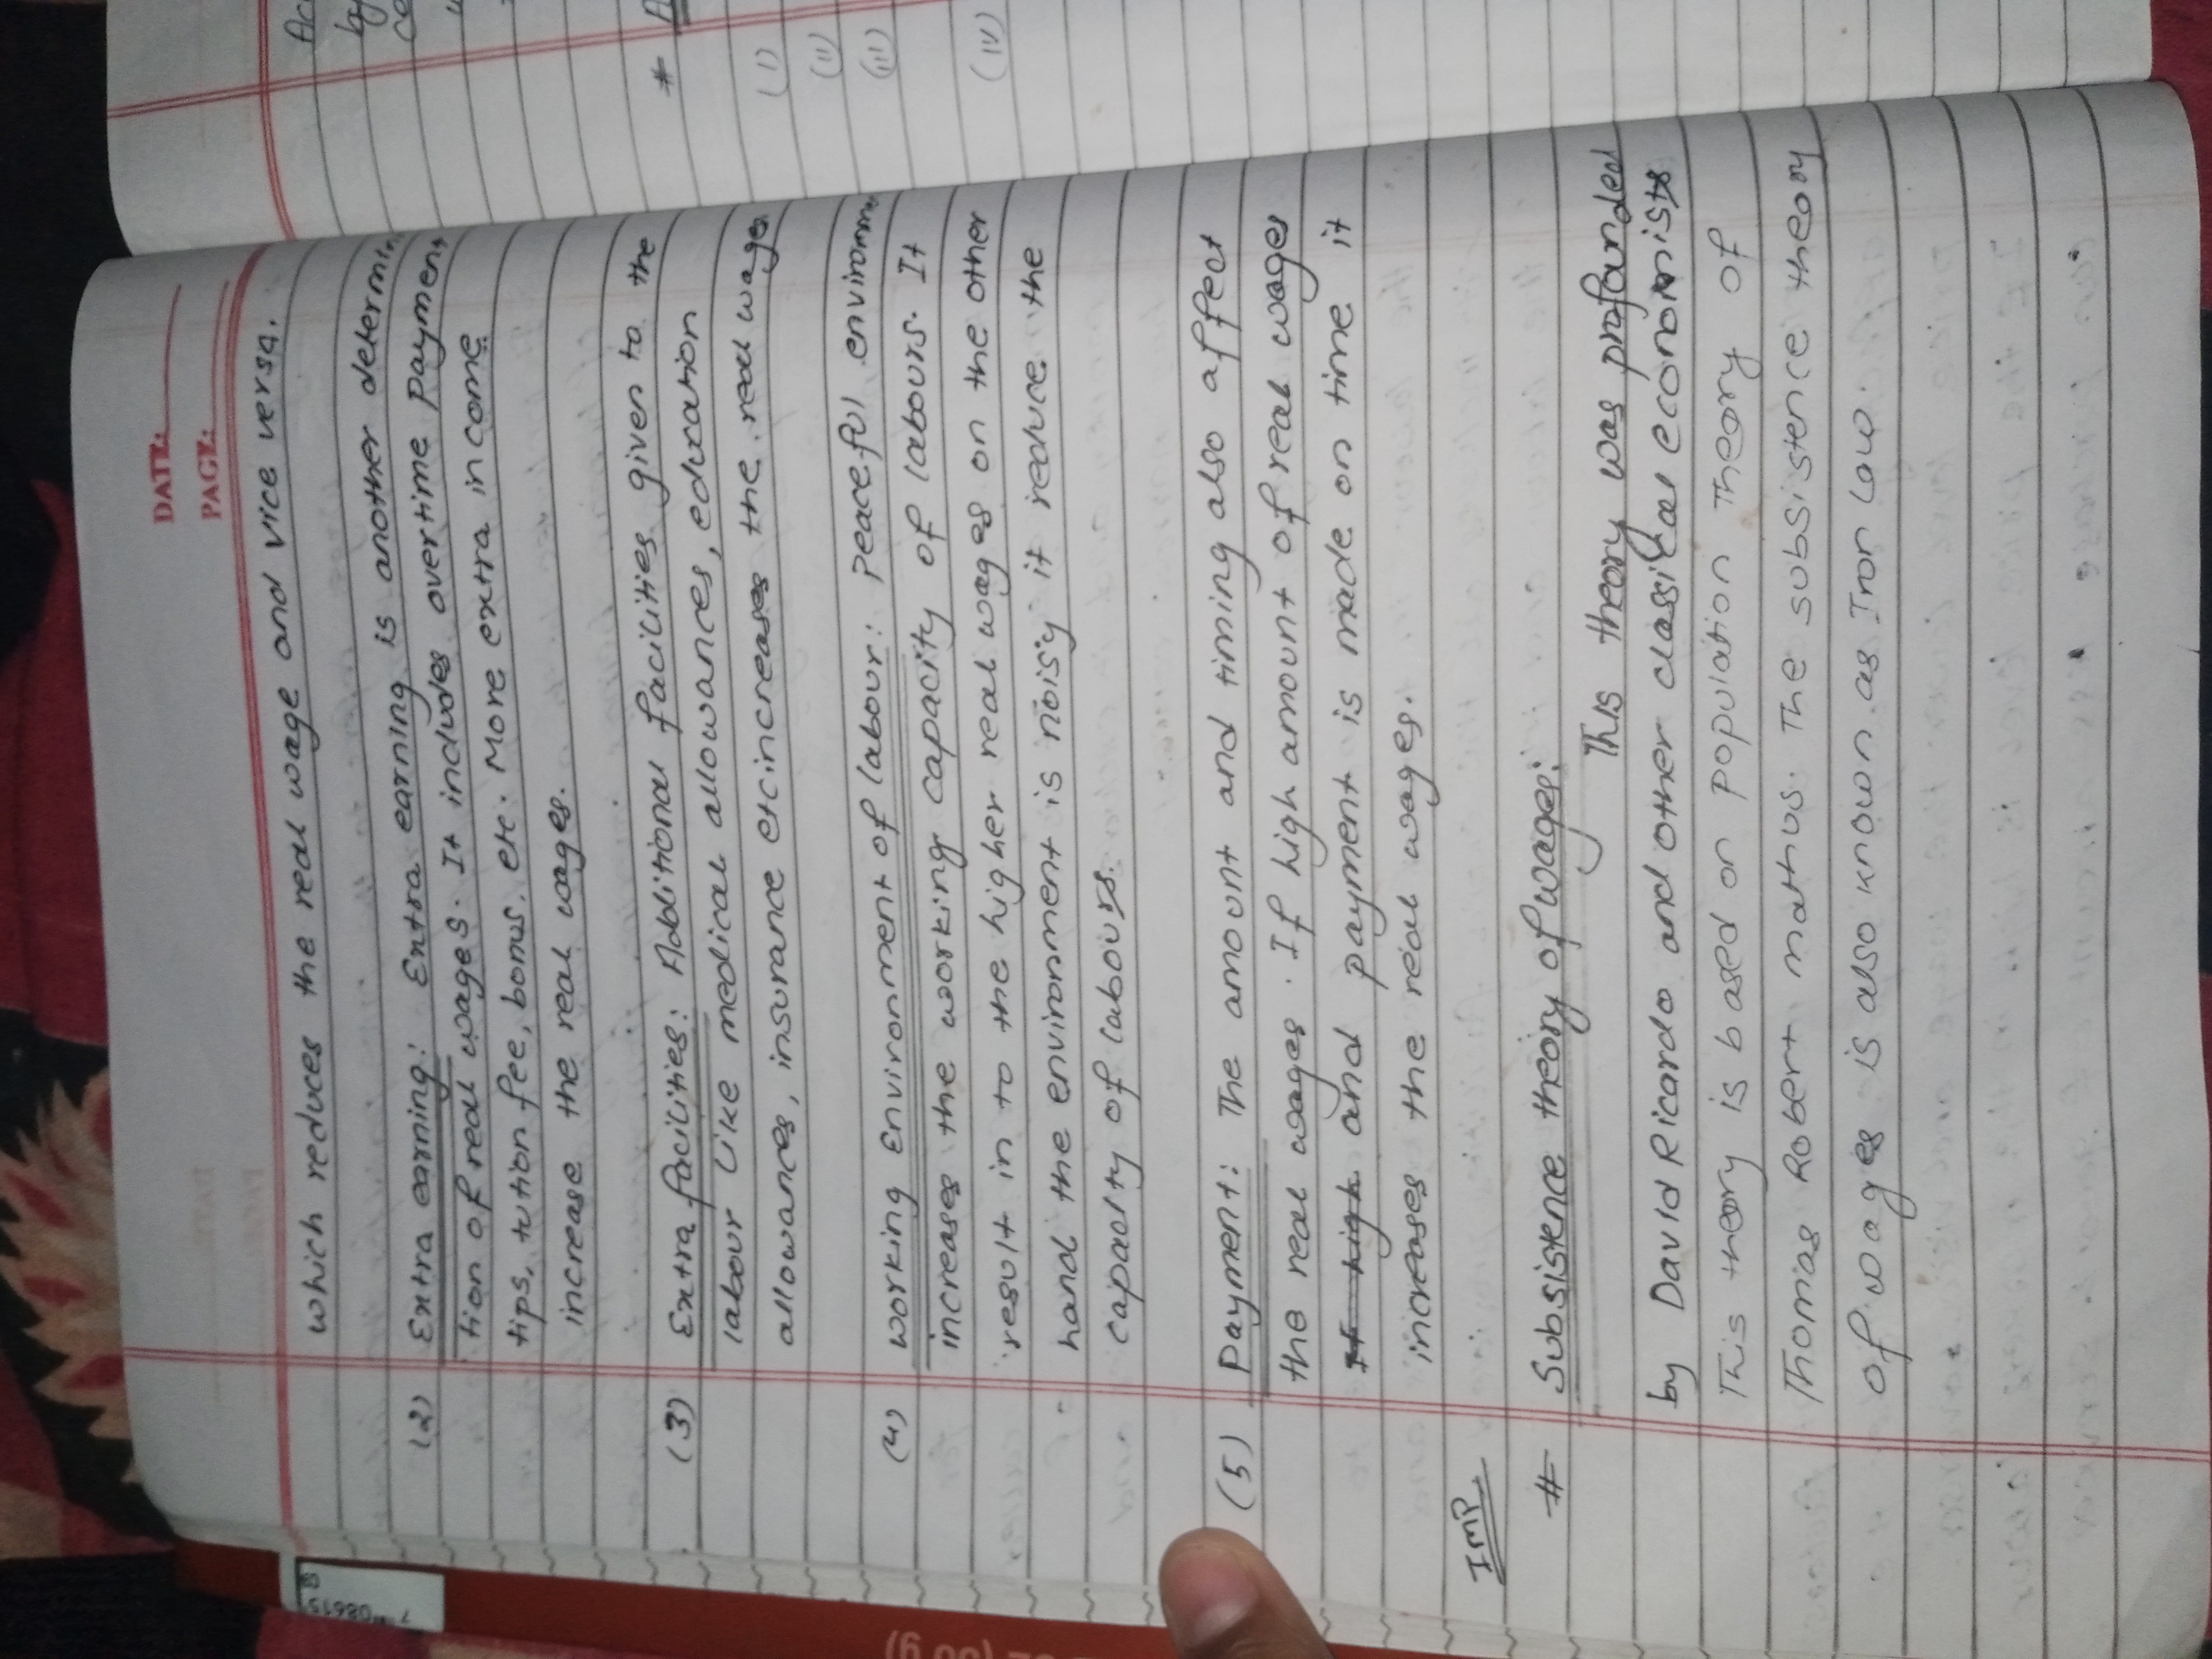 DATE:
PAGE:
which reduces the real wage and vice versa.
(2) Extra earning: Extra earning is another determin
tion of real wages. It includes overtime payment
tips, tution fee, bonus. etc. More extra income
increase the real wages.
(3) Extra facilities: Additional facilities given to the
labour like medical allowances, education
allowances, insurance etc increases the real wages
(4) working Environment of labour: Peaceful environm
increases the working capacity of labours. It
result in to the higher real wages on the other
hand the environment is noisy it reduce the
capacity of labours.
(5) Payment: The amount and timing also affect
the real wages. If high amount of real wages
and payment is made on time it
increases the real wages.
IMP
# Subsistence theory of wages:
This theory was profounded
by David Ricardo and other classical economists
This theory is based on population theory of
Thomas Robert mathus. The subsistence theory
of wages is also known as Iron law.
by
*
(I)
(II)
(III)
(IV)
08615